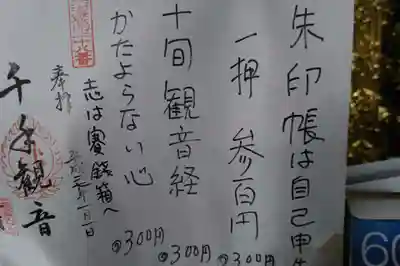 朱印帳は自己申
一押 参百円
@300円
十旬観音経
@300円
かたよらない心
@300円
志は賽銭箱へ
十六番
奉拝
年一月一日
千手觀音
60